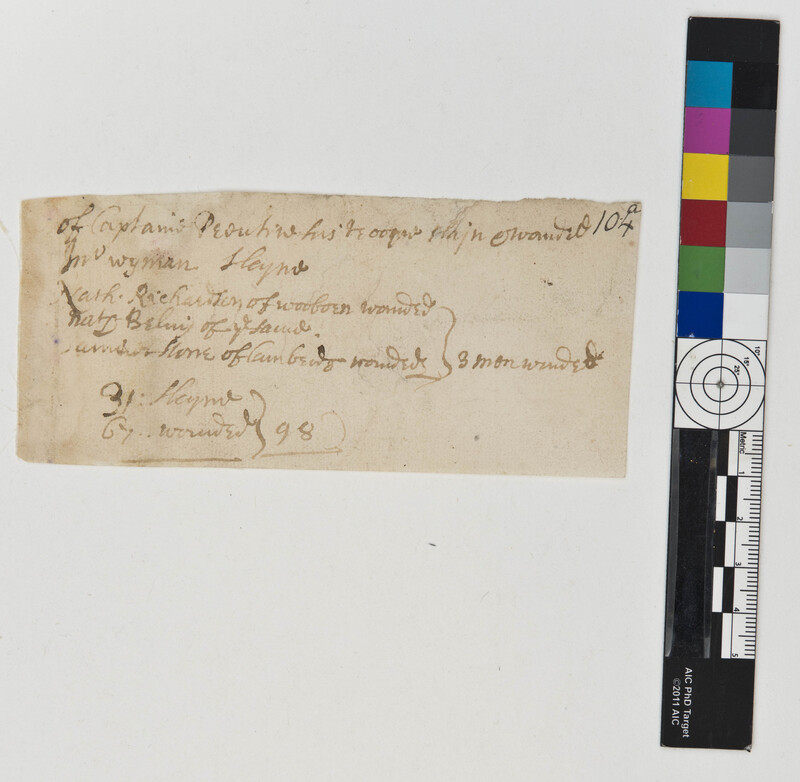 of Captaine Prentise his troope slajn & wounded 104a
Jno wyman slayne
Nath. Richardson of wooborn wounded
of ye same
stone of Cambridg wounded 3 men wounded
31: slayne
67.. wounded 98
Metric
1
2
3
4
5
10°
15°
25°
AIC PhD Target
©2011 AIC